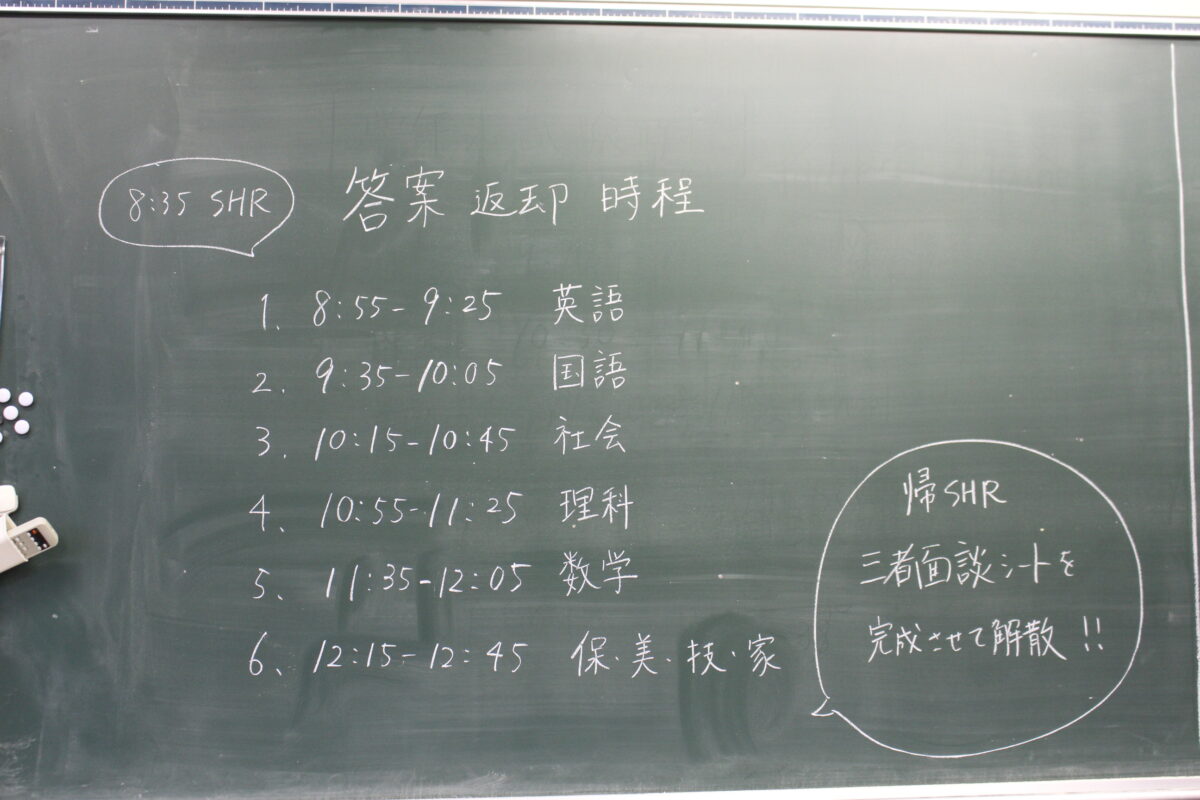 8:35 SHR
答案返却時程
1. 8:55-9:25 英語
2. 9:35-10:05 国語
3. 10:15-10:45 社会
4. 10:55-11:25 理科
5. 11:35-12:05 数学
6. 12:15-12:45 保・美・技・家
帰SHR
三者面談シートを
完成させて解散!!